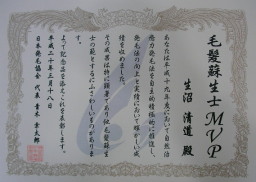 毛髪蘇生士MVP
生沼 清道 殿
あなたは平成十九年度において自然治
癒力発毛法を自主的積極的に推進し
発毛法の向上と実績において輝かしい成
績を収めました。
その成果は特に顕著であり他毛髪蘇生
士の範とするにふさわしいものがありま
す
よって記念品を添えこれを表彰します。
平成二十年三月十八日
日本発毛協会 代表